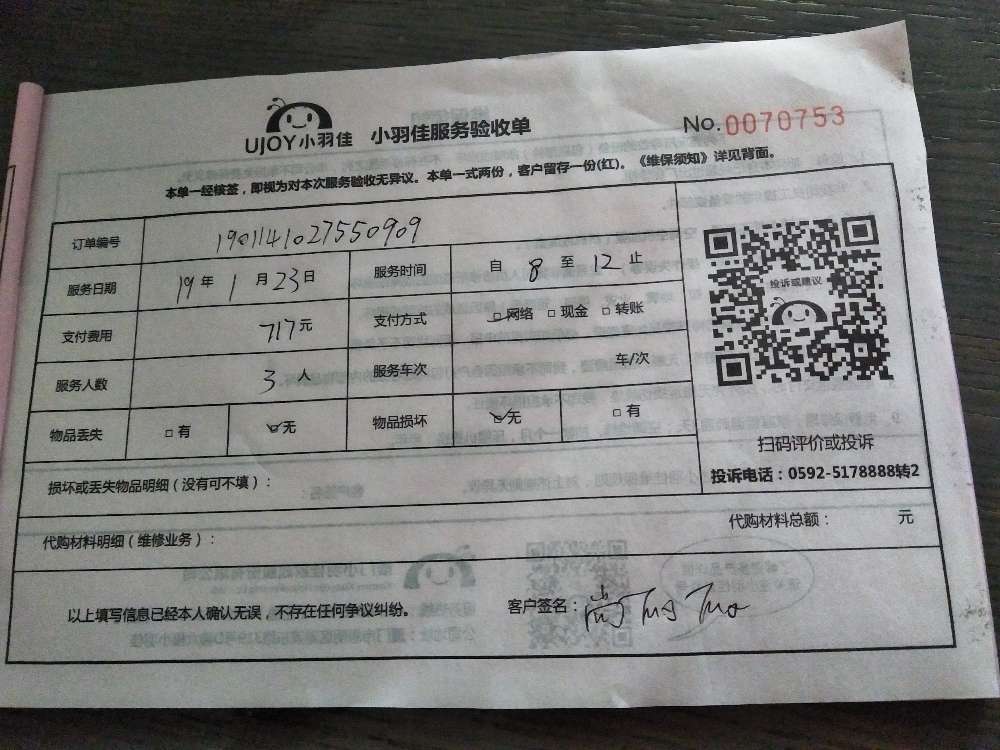 UJOY小羽佳 小羽佳服务验收单 No.0070753
本单一经核签，即视为对本次服务验收无异议。本单一式两份，客户留存一份(红)。《维保须知》详见背面。
订单编号 1901141027550909
服务日期 19年1月23日 服务时间 自8至12止
支付费用 717元 支付方式 网络 现金 转账
服务人数 3人 服务车次 车/次
物品丢失 有 无 物品损坏 无 有
投诉或建议
扫码评价或投诉
投诉电话：0592-5178888转2
损坏或丢失物品明细（没有可不填）：
代购材料明细（维修业务）： 代购材料总额： 元
以上填写信息已经本人确认无误，不存在任何争议纠纷。 客户签名：尚